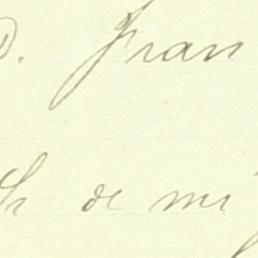 D. Fran
Sr de mi